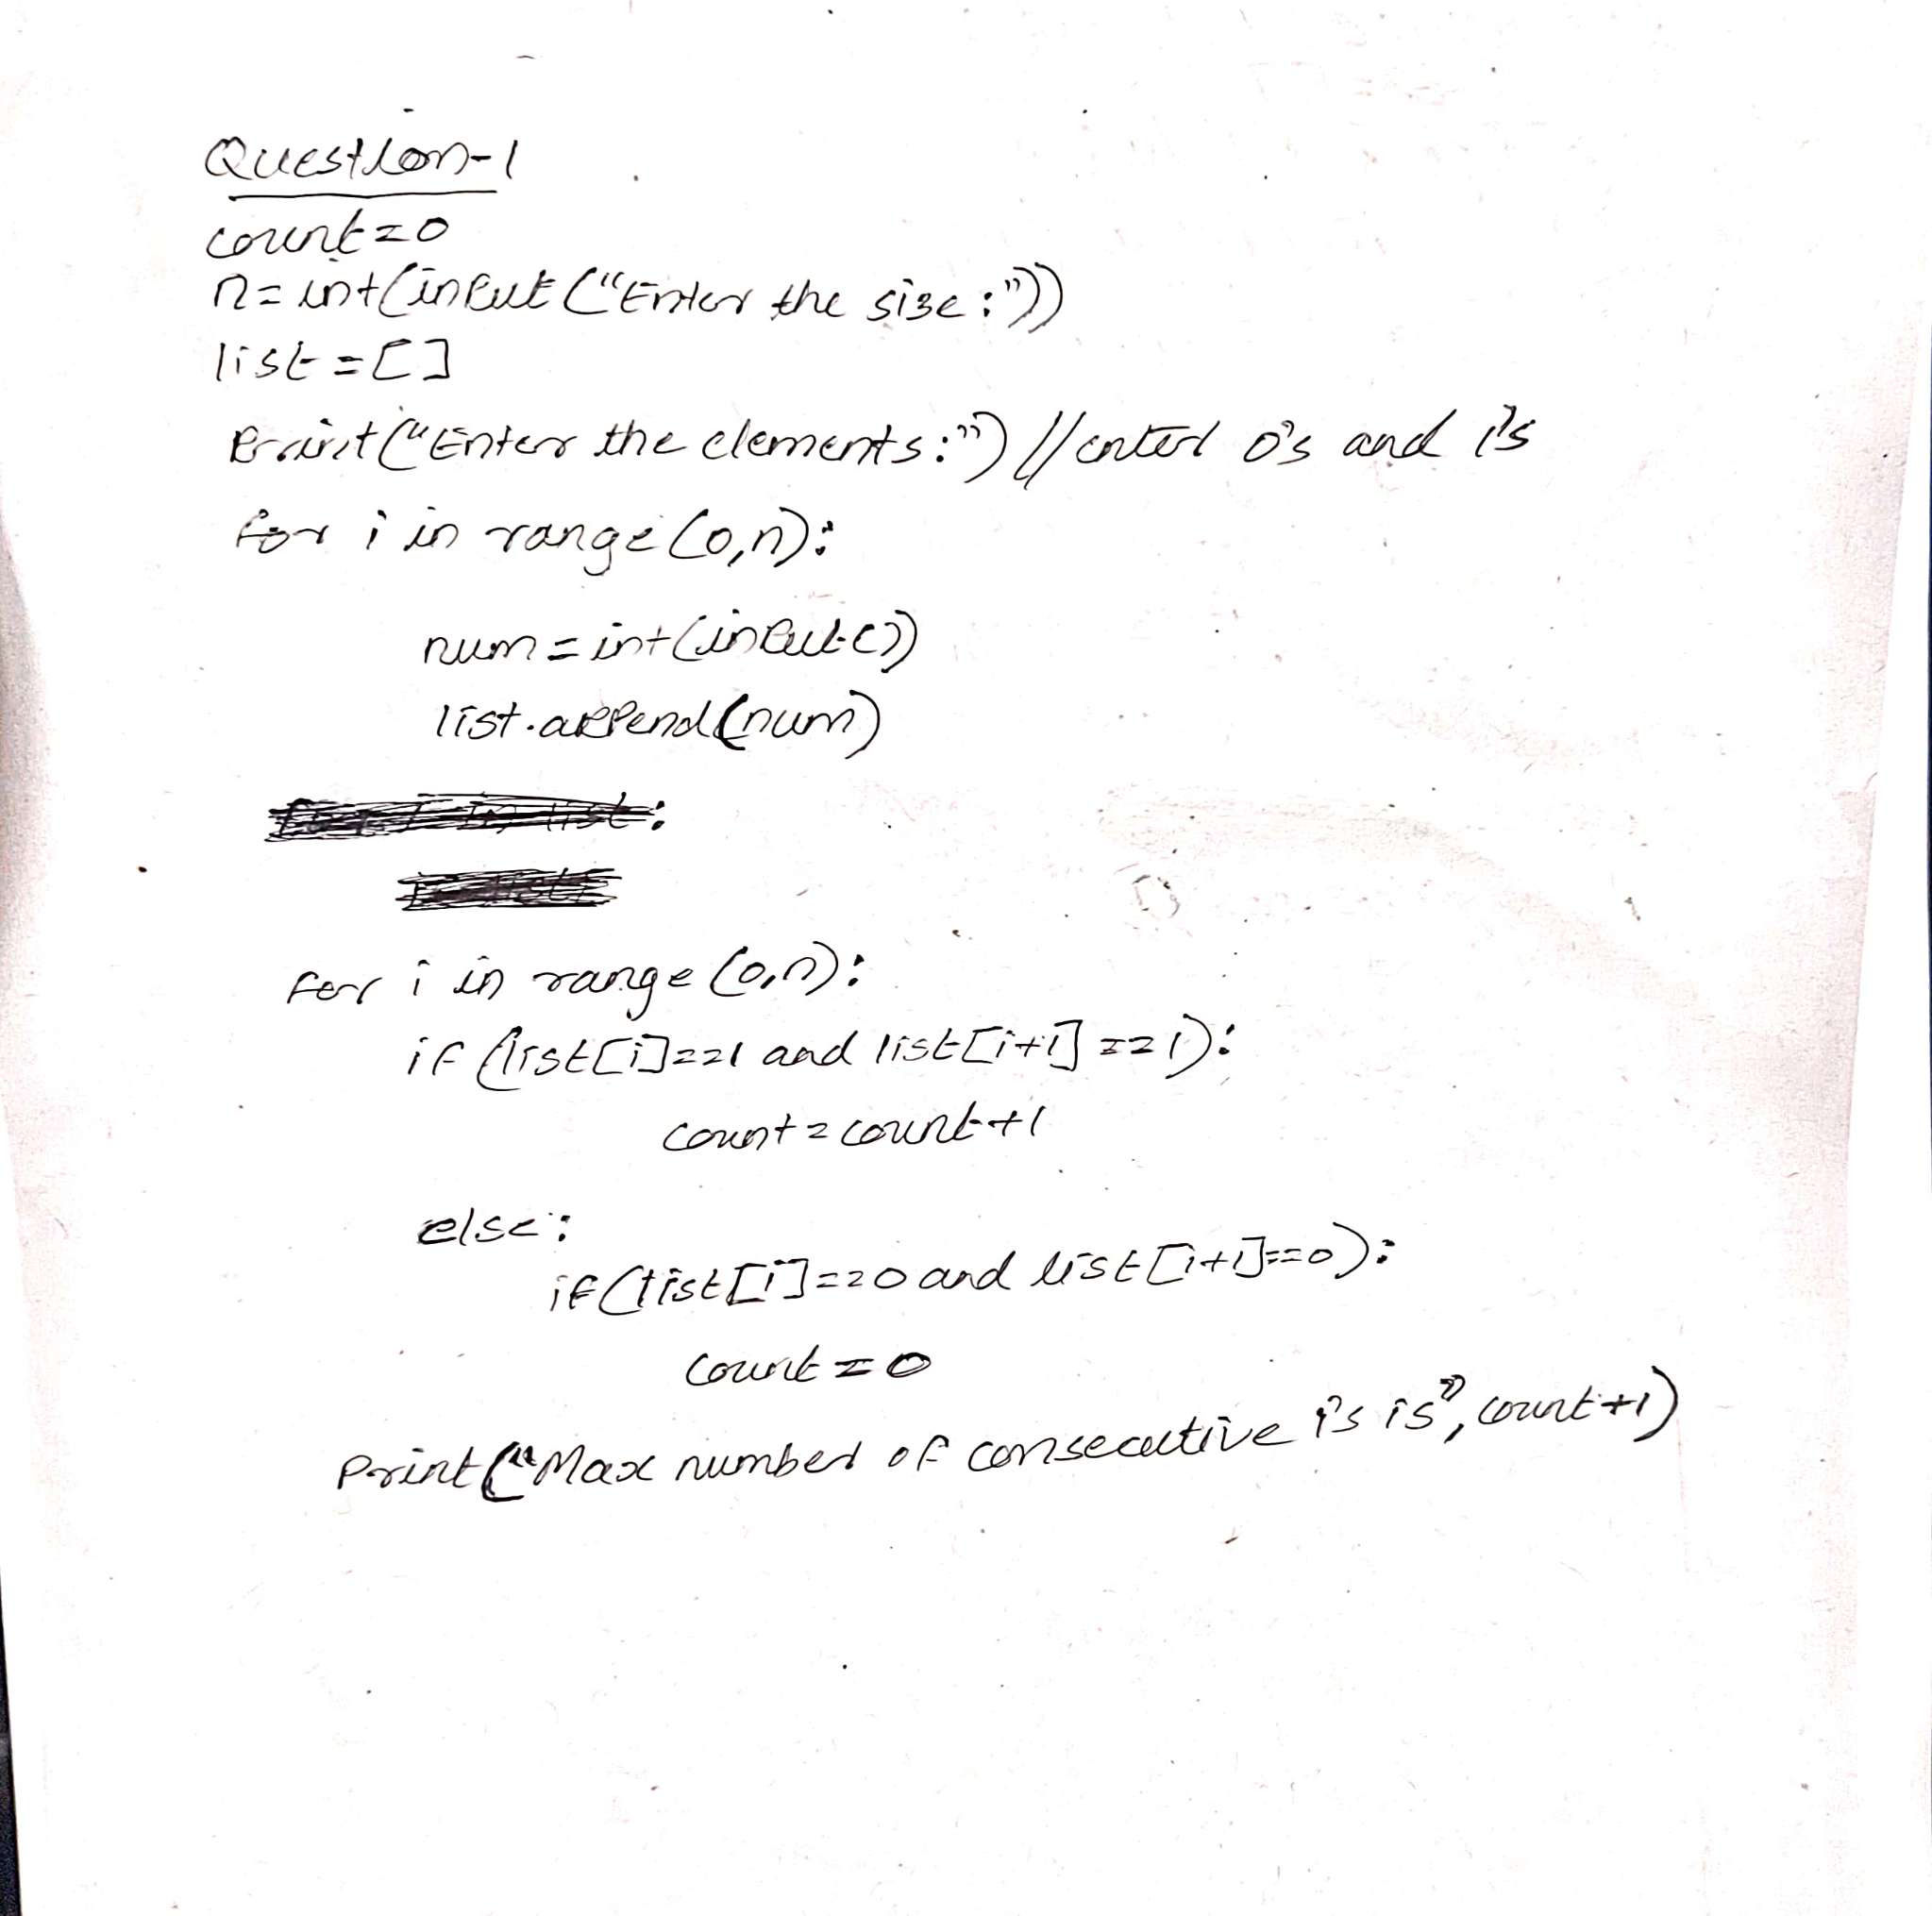 Question-1
count=0
n=int(input("Enter the size:"))
list=[]
Print("Enter the elements:") //enter 0's and 1's
for i in range(0,n):
num=int(input())
list.append(num)
for i in range(0,n):
if (list[i]==1 and list[i+1]==1):
count=count+1
else:
if(list[i]==0 and list[i+1]==0):
count=0
Print("Max number of consecutive 1's is", count+1)